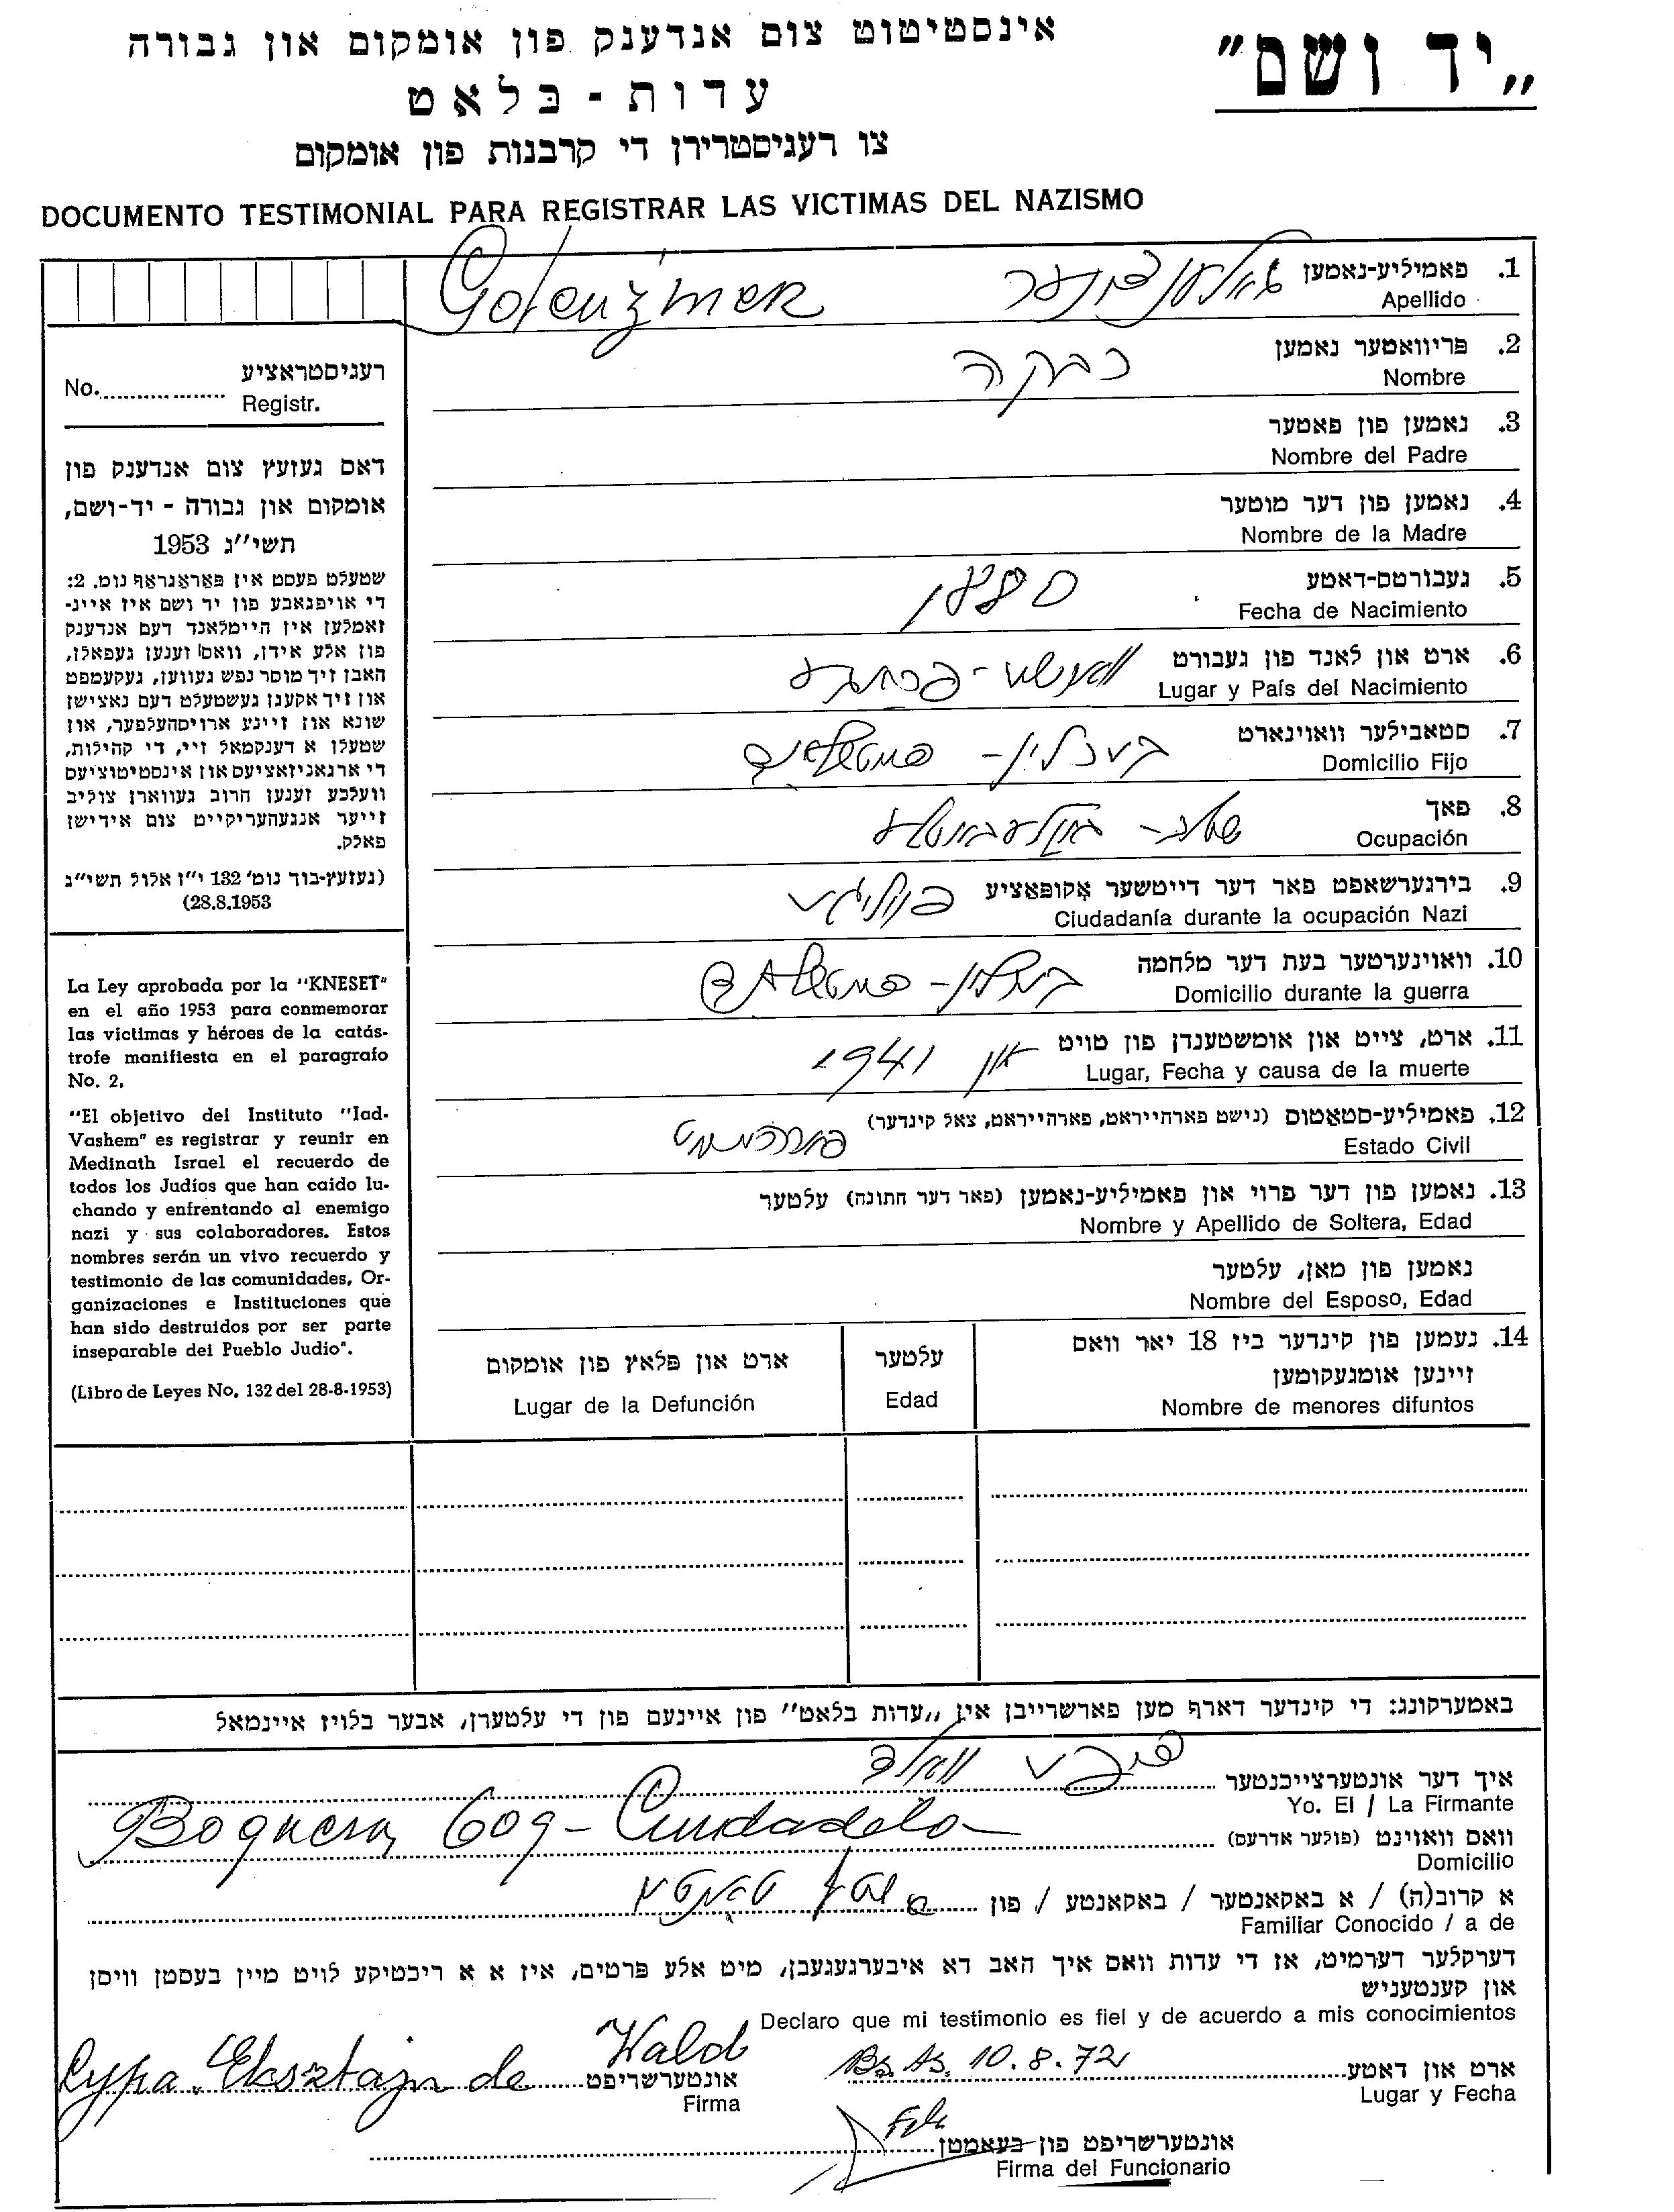 „יד ושם"
אינסטיטוט צום אנדענק פון אומקום און גבורה
עדות - בלאט
צו רעגיסטרירן די קרבנות פון אומקום
DOCUMENTO TESTIMONIAL PARA REGISTRAR LAS VICTIMAS DEL NAZISMO
1. פאמיליע-נאמען
Apellido
2. פריוואטער נאמען רבקה
Nombre
3. נאמען פון פאטער
Nombre del Padre
4. נאמען פון דער מוטער
Nombre de la Madre
5. געבורטס-דאטע
Fecha de Nacimiento
6. ארט און לאנד פון געבורט
Lugar y País del Nacimiento
7. סטאבילער וואוינארט
Domicilio Fijo
8. פאך
Ocupación
9. בירגערשאפט פאר דער דייטשער אָקופאַציע
Ciudadanía durante la ocupación Nazi
10. וואוינערטער בעת דער מלחמה
Domicilio durante la guerra
11. ארט, צייט און אומשטענדן פון טויט אין 1941
Lugar, Fecha y causa de la muerte
12. פאמיליע-סטאַטוס (נישט פארהייראט, פארהייראט, צאל קינדער)
Estado Civil
13. נאמען פון דער פרוי און פאמיליע-נאמען (פאר דער חתונה) עלטער
Nombre y Apellido de Soltera, Edad
נאמען פון מאן, עלטער
Nombre del Esposo, Edad
14. נעמען פון קינדער ביז 18 יאר וואס
זיינען אומגעקומען
Nombre de menores difuntos
עלטער
Edad
ארט און פלאץ פון אומקום
Lugar de la Defunción
רעגיסטראציע
No. Registr.
דאס געזעץ צום אנדענק פון
אומקום און גבורה - יד-ושם,
תשי"ג 1953
שטעלט פעסט אין פאראגראף נומ. 2:
די אויפגאבע פון יד ושם איז איינ-
זאמלען אין היימלאנד דעם אנדענק
פון אלע אידן, וואס זענען געפאלן,
האבן זיך מוסר נפש געווען, געקעמפט
און זיך אקעגן געשטעלט דעם נאצישן
שונא און זיינע ארויסהעלפער, און
שטעלן א דענקמאל זיי, די קהילות,
די ארגאניזאציעס און אינסטיטוציעס
וועלכע זענען חרוב געווארן צוליב
זייער אנגעהעריקייט צום אידישן
פאלק.
(געזעץ-בוך נומ' 132 י"ז אלול תשי"ג
28.8.1953)
La Ley aprobada por la "KNESET"
en el año 1953 para conmemorar
las víctimas y héroes de la catás-
trofe manifiesta en el paragrafo
No. 2.
"El objetivo del Instituto "Iad-
Vashem" es registrar y reunir en
Medinath Israel el recuerdo de
todos los Judíos que han caido lu-
chando y enfrentando al enemigo
nazi y sus colaboradores. Estos
nombres serán un vivo recuerdo y
testimonio de las comunidades, Or-
ganizaciones e Instituciones que
han sido destruidos por ser parte
inseparable del Pueblo Judío".
(Libro de Leyes No. 132 del 28-8-1953)
באמערקונג: די קינדער דארף מען פארשרייבן אין „עדות בלאט" פון איינעם פון די עלטערן, אבער בלויז איינמאל
איך דער אונטערצייכנטער
Yo. El / La Firmante
וואס וואוינט (פולער אדרעס) 609 - Ciudadela
Domicilio
א קרוב(ה) / א באקאנטער / באקאנטע / פון
Familiar Conocido / a de
דערקלער דערמיט, אז די עדות וואס איך האב דא איבערגעגעבן, מיט אלע פרטים, איז א א ריכטיקע לויט מיין בעסטן וויסן
און קענטעניש
Declaro que mi testimonio es fiel y de acuerdo a mis conocimientos
ארט און דאטע Bs. As. 10.8.72
Lugar y Fecha
אונטערשריפט Lypa Eksztajn de Wald
Firma
אונטערשריפט פון בעאמטן
Firma del Funcionario